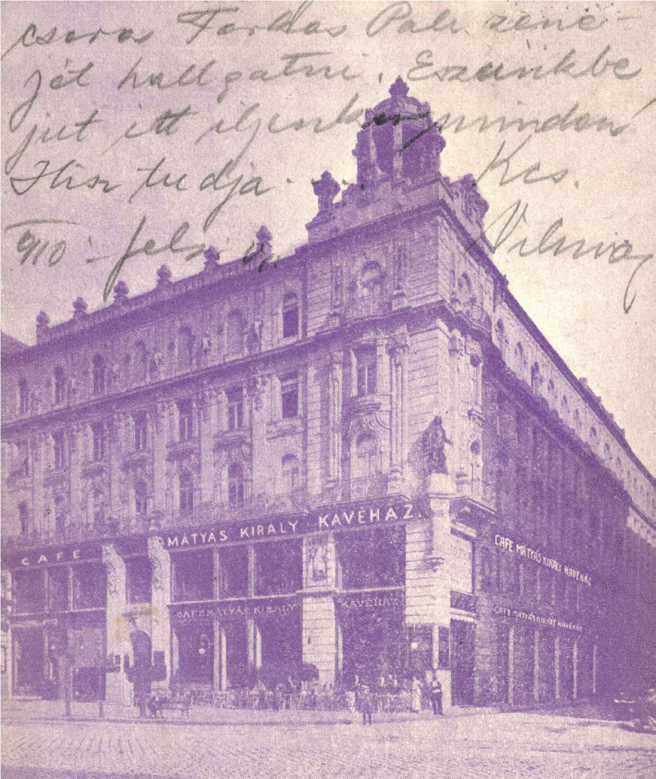 csoros Farkas Pali zené-
jét hallgatni. Eszünkbe
jut itt iljenkor mindon
Hisz tudja . . . Kcs.
910 Vilmos
CAFÉ
MÁTYÁS KIRÁLY KÁVÉHÁZ.
CAFE MÁTYÁS KIRÁLY KÁVÉHÁZ
CAFE MÁTYÁS KIRÁLY KÁVÉHÁZ
CAFE MÁTYÁS KIRÁLY KÁVÉHÁZ